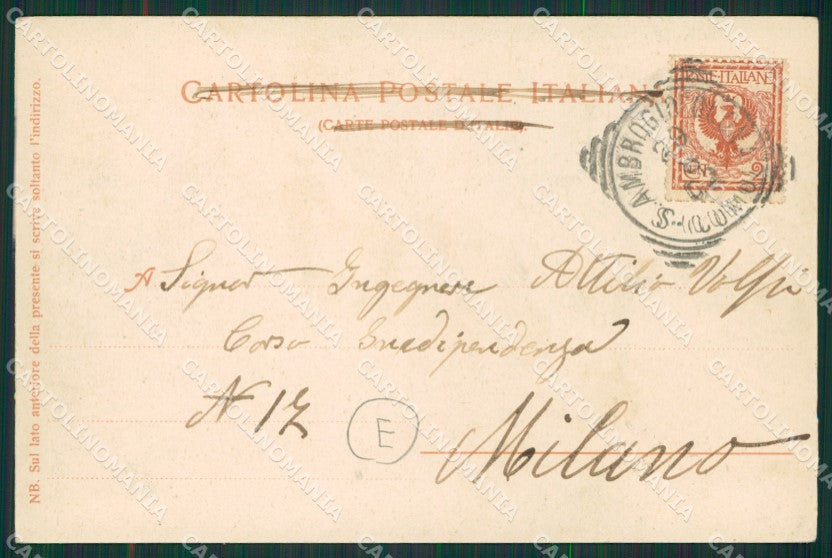 CARTOLINA POSTALE ITALIANA
(CARTE POSTALE D'ITALIE).
POSTE ITALIANE
S. AMBROGIO
A Signor Ingegnere Attilio Volpi
Corso Indipendenza
N 12
E
Milano
NB. Sul lato anteriore della presente si scrive soltanto l'indirizzo.
CARTOLINOMANIA